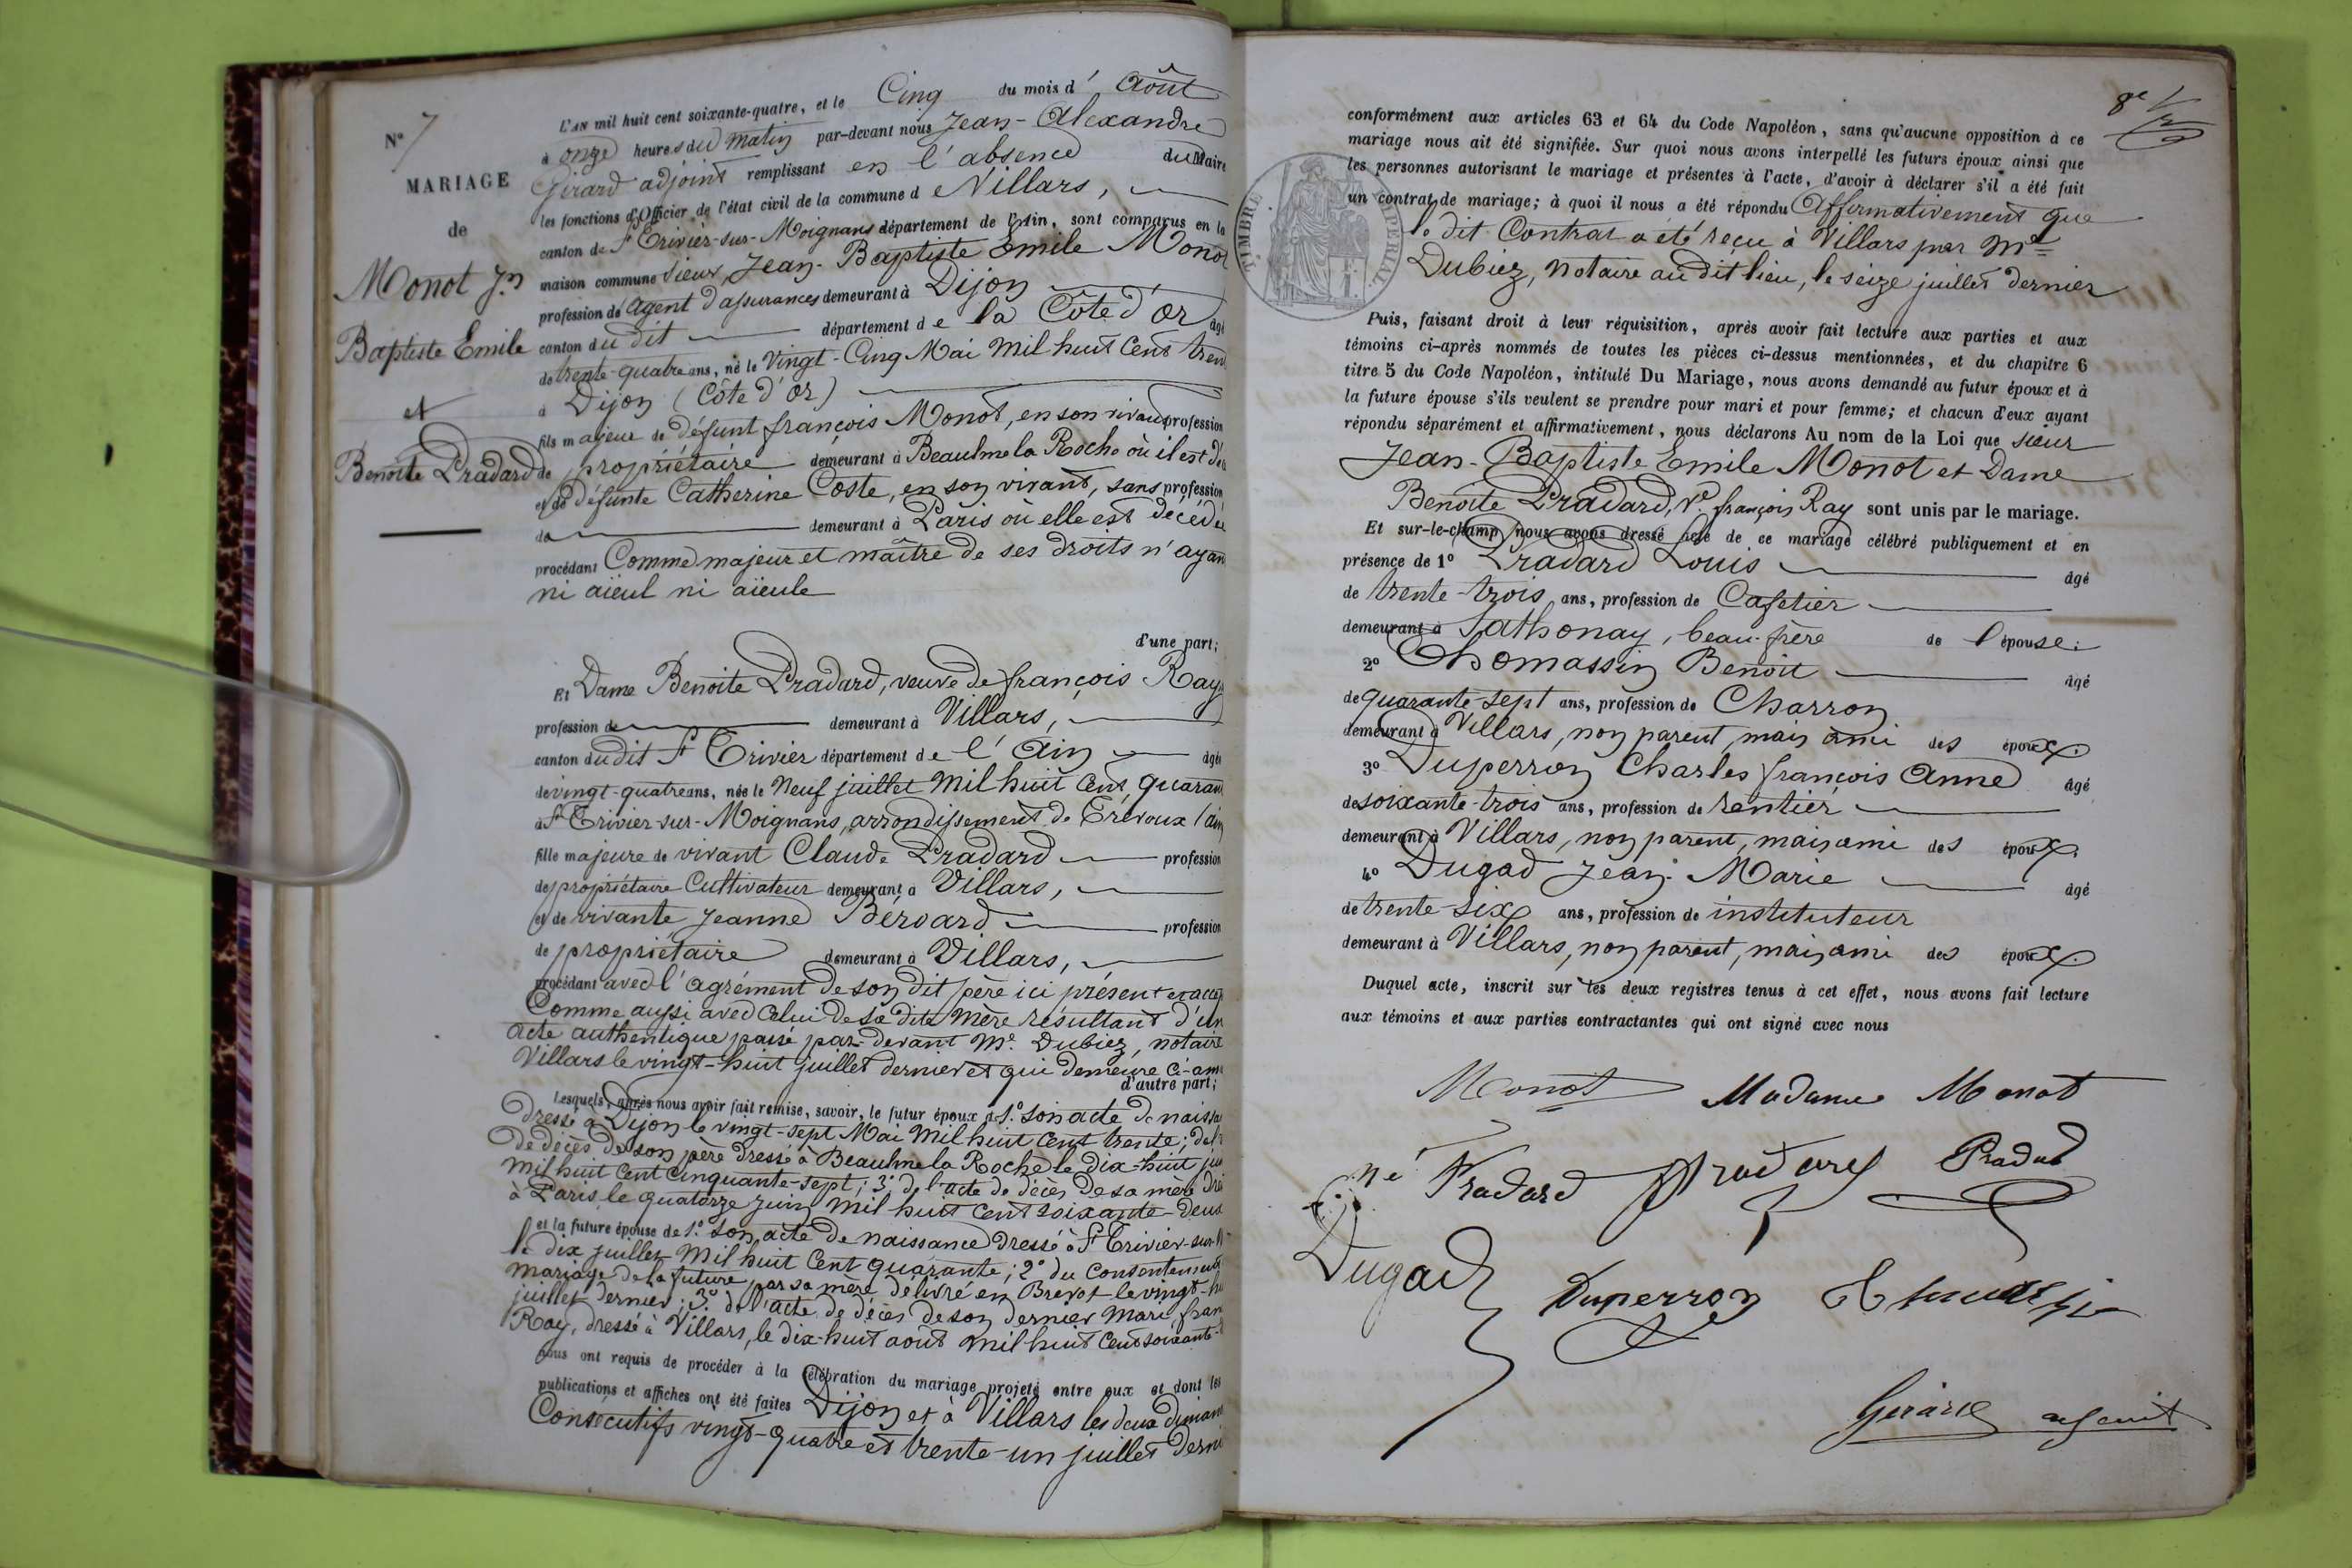 N° 7
MARIAGE
de
Monot Jn
Baptiste Emile
et
Benoite Pradard
L'AN mil huit cent soixante-quatre, et le Cinq du mois d' Août
à onze heures du matin par-devant nous Jean-Alexandre
Girard adjoint remplissant en l'absence du Maire
les fonctions d'Officier de l'état civil de la commune de Villars,
canton de St Trivier-sur-Moignans département de l'Ain, sont comparus en la
maison commune Sieur Jean-Baptiste Emile Monot
profession d'agent d'assurances demeurant à Dijon
canton dudit département de la Côte d'or âgé
de trente-quatre ans, né le Vingt-Cinq Mai Mil huit Cent tren
à Dijon (Côte d'Or)
fils majeur de défunt françois Monot, en son vivant profession
de propriétaire demeurant à Beaulme la Roche où il est dé
et de défunte Catherine Coste, en son vivant, sans profession
de demeurant à Paris où elle est décédée
procédant Comme majeur et maître de ses droits n'ayan
ni aïeul ni aïeule
d'une part;
Et Dame Benoite Pradard, veuve de françois Ray
profession de demeurant à Villars,
canton dudit St Trivier département de l'Ain âgée
de vingt-quatre ans, née le Neuf juillet Mil huit Cent, quaran
à St Trivier-sur-Moignans, arrondissement de Trévoux (ain
fille majeure de vivant Claude Pradard profession
de propriétaire Cultivateur demeurant à Villars,
et de vivante Jeanne Beroard profession
de propriétaire demeurant à Villars,
procédant avec l'agrément de son dit père ici présent et accep
Comme aussi avec Celui de sa dite Mère résultant d'un
acte authentique passé par-devant Me Dubiez, notaire
Villars le vingt-huit juillet dernier et qui demeure Ci-ann
d'autre part;
Lesquels, après nous avoir fait remise, savoir, le futur époux de 1° son acte de naissa
dressé à Dijon le vingt-sept Mai Mil huit Cent trente; de l
de décès de son père dressé à Beaulme la Roche le dix-huit ju
Mil huit Cent Cinquante-sept; 3° de l'acte de décès de sa mère dre
à Paris le quatorze juin Mil huit Cent soixante-deux
et la future épouse de 1° son acte de naissance dressé à St Trivier-sur-M
le dix juillet Mil huit Cent quarante; 2° du Consentement
mariage de la future par sa mère délivré en Brevet le vingt-hu
juillet dernier; 3° de l'acte de décès de son dernier Mari, fran
Ray, dressé à Villars, le dix-huit août Mil huit Cent soixante-
nous ont requis de procéder à la célébration du mariage projeté entre eux et dont les
publications et affiches ont été faites Dijon et à Villars les deux diman
Consécutifs vingt-quatre et trente-un juillet derni
8e
TIMBRE IMPERIAL
conformément aux articles 63 et 64 du Code Napoléon, sans qu'aucune opposition à ce
mariage nous ait été signifiée. Sur quoi nous avons interpellé les futurs époux ainsi que
les personnes autorisant le mariage et présentes à l'acte, d'avoir à déclarer s'il a été fait
un contrat de mariage; à quoi il nous a été répondu Affirmativement que
le dit Contrat a été reçu à Villars par Me
Dubiez, notaire au dit lieu, le seize juillet dernier
Puis, faisant droit à leur réquisition, après avoir fait lecture aux parties et aux
témoins ci-après nommés de toutes les pièces ci-dessus mentionnées, et du chapitre 6
titre 5 du Code Napoléon, intitulé Du Mariage, nous avons demandé au futur époux et à
la future épouse s'ils veulent se prendre pour mari et pour femme; et chacun d'eux ayant
répondu séparément et affirmativement, nous déclarons Au nom de la Loi que sieur
Jean-Baptiste Emile Monot et Dame
Benoite Pradard, Ve françois Ray sont unis par le mariage.
Et sur-le-champ nous avons dressé acte de ce mariage célébré publiquement et en
présence de 1° Pradard Louis âgé
de trente-trois ans, profession de Cafetier
demeurant à Sathonay, beau-frère de l'épouse;
2° Thomassin Benoit âgé
de quarante-sept ans, profession de Charron
demeurant à Villars, non parent, mais ami des époux.
3° Duperron Charles françois Anne âgé
de soixante-trois ans, profession de rentier
demeurant à Villars, non parent, mais ami des époux.
4° Dugad Jean-Marie âgé
de trente-six ans, profession de instituteur
demeurant à Villars, non parent, mais ami des époux.
Duquel acte, inscrit sur les deux registres tenus à cet effet, nous avons fait lecture
aux témoins et aux parties contractantes qui ont signé avec nous
Monot Madame Monot
né Pradard Pradard Pradat
Dugad Duperron Thomassin
Girard adjoint